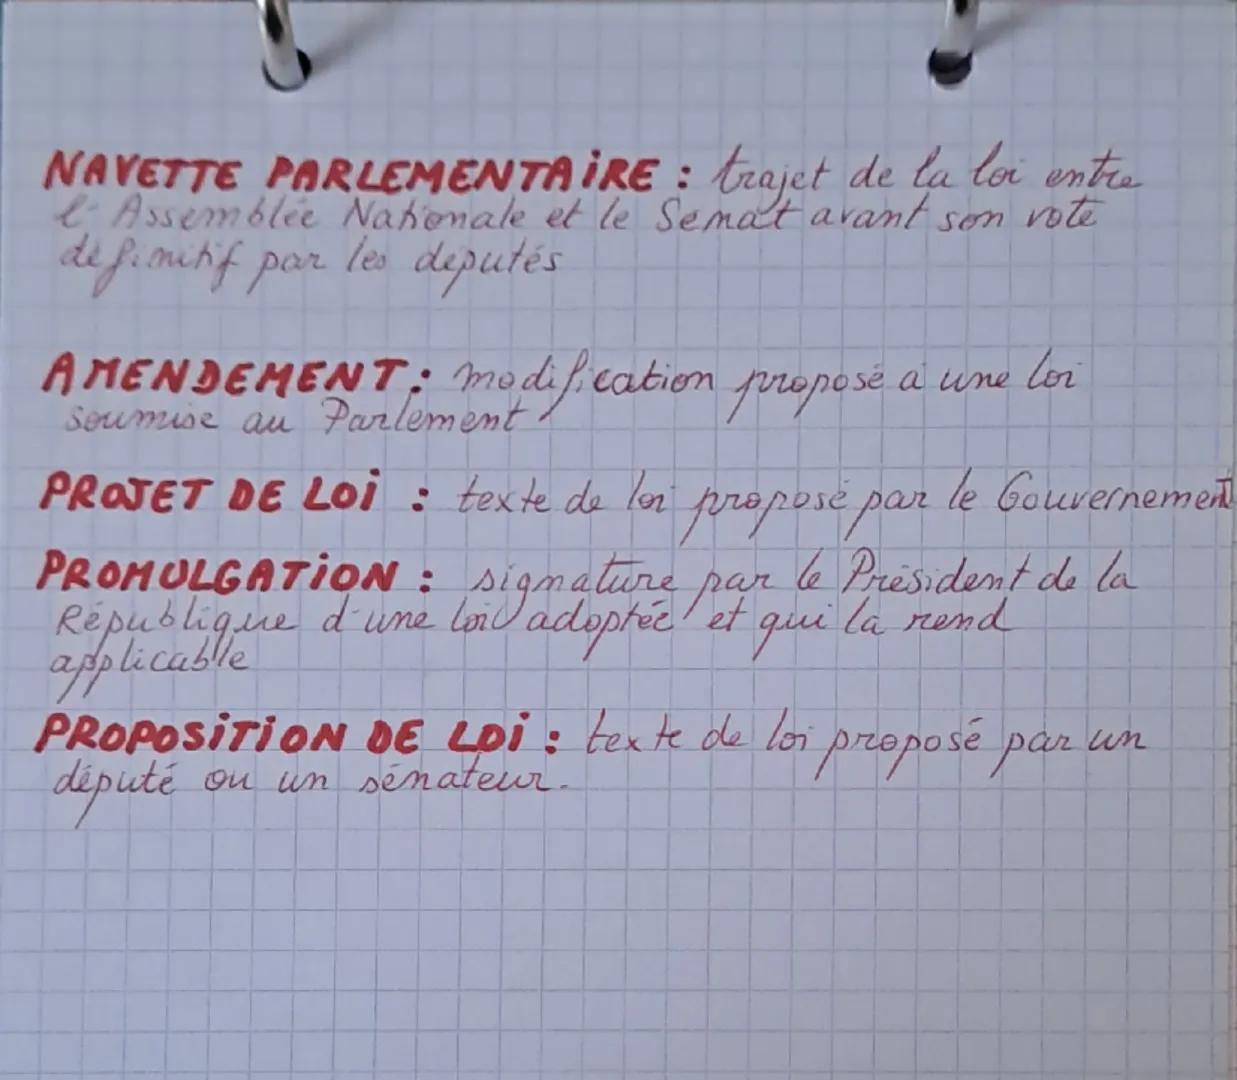 NAVETTE PARLEMENTAIRE : trajet de la loi entre
l'Assemblée Nationale et le Sénat avant son vote
définitif par les députés
AMENDEMENT : modification proposé à une loi
soumise au Parlement
PROJET DE LOI : texte de loi proposé par le Gouvernement
PROMULGATION : signature par le Président de la
République d'une loi adoptée et qui la rend
applicable
PROPOSITION DE LOI : texte de loi proposé par un
député ou un sénateur.